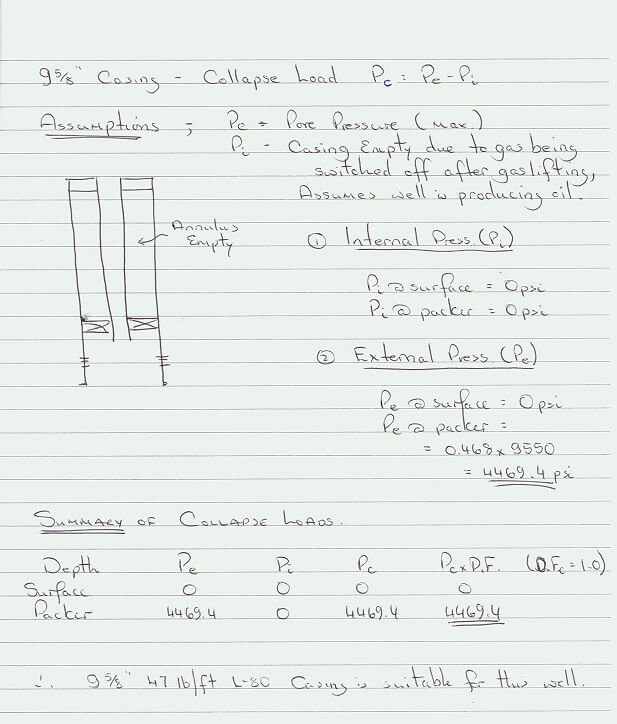 9 5/8" Casing - Collapse Load Pc = Pe - Pi
Assumptions ; Pe = Pore Pressure (max.)
Pi - Casing Empty due to gas being
switched off after gaslifting,
Assumes well is producing oil.
Annulus
Empty
① Internal Press. (Pi)
Pi @ surface = 0psi
Pi @ packer = 0psi
② External Press. (Pe)
Pe @ surface = 0psi
Pe @ packer =
= 0.468 x 9550
= 4469.4 psi
SUMMARY OF COLLAPSE LOADS.
Depth Pe Pi Pc Pc x D.F. (D.Fc = 1.0)
Surface 0 0 0 0
Packer 4469.4 0 4469.4 4469.4
∴ 9 5/8" 47 lb/ft L-80 Casing is suitable for this well.